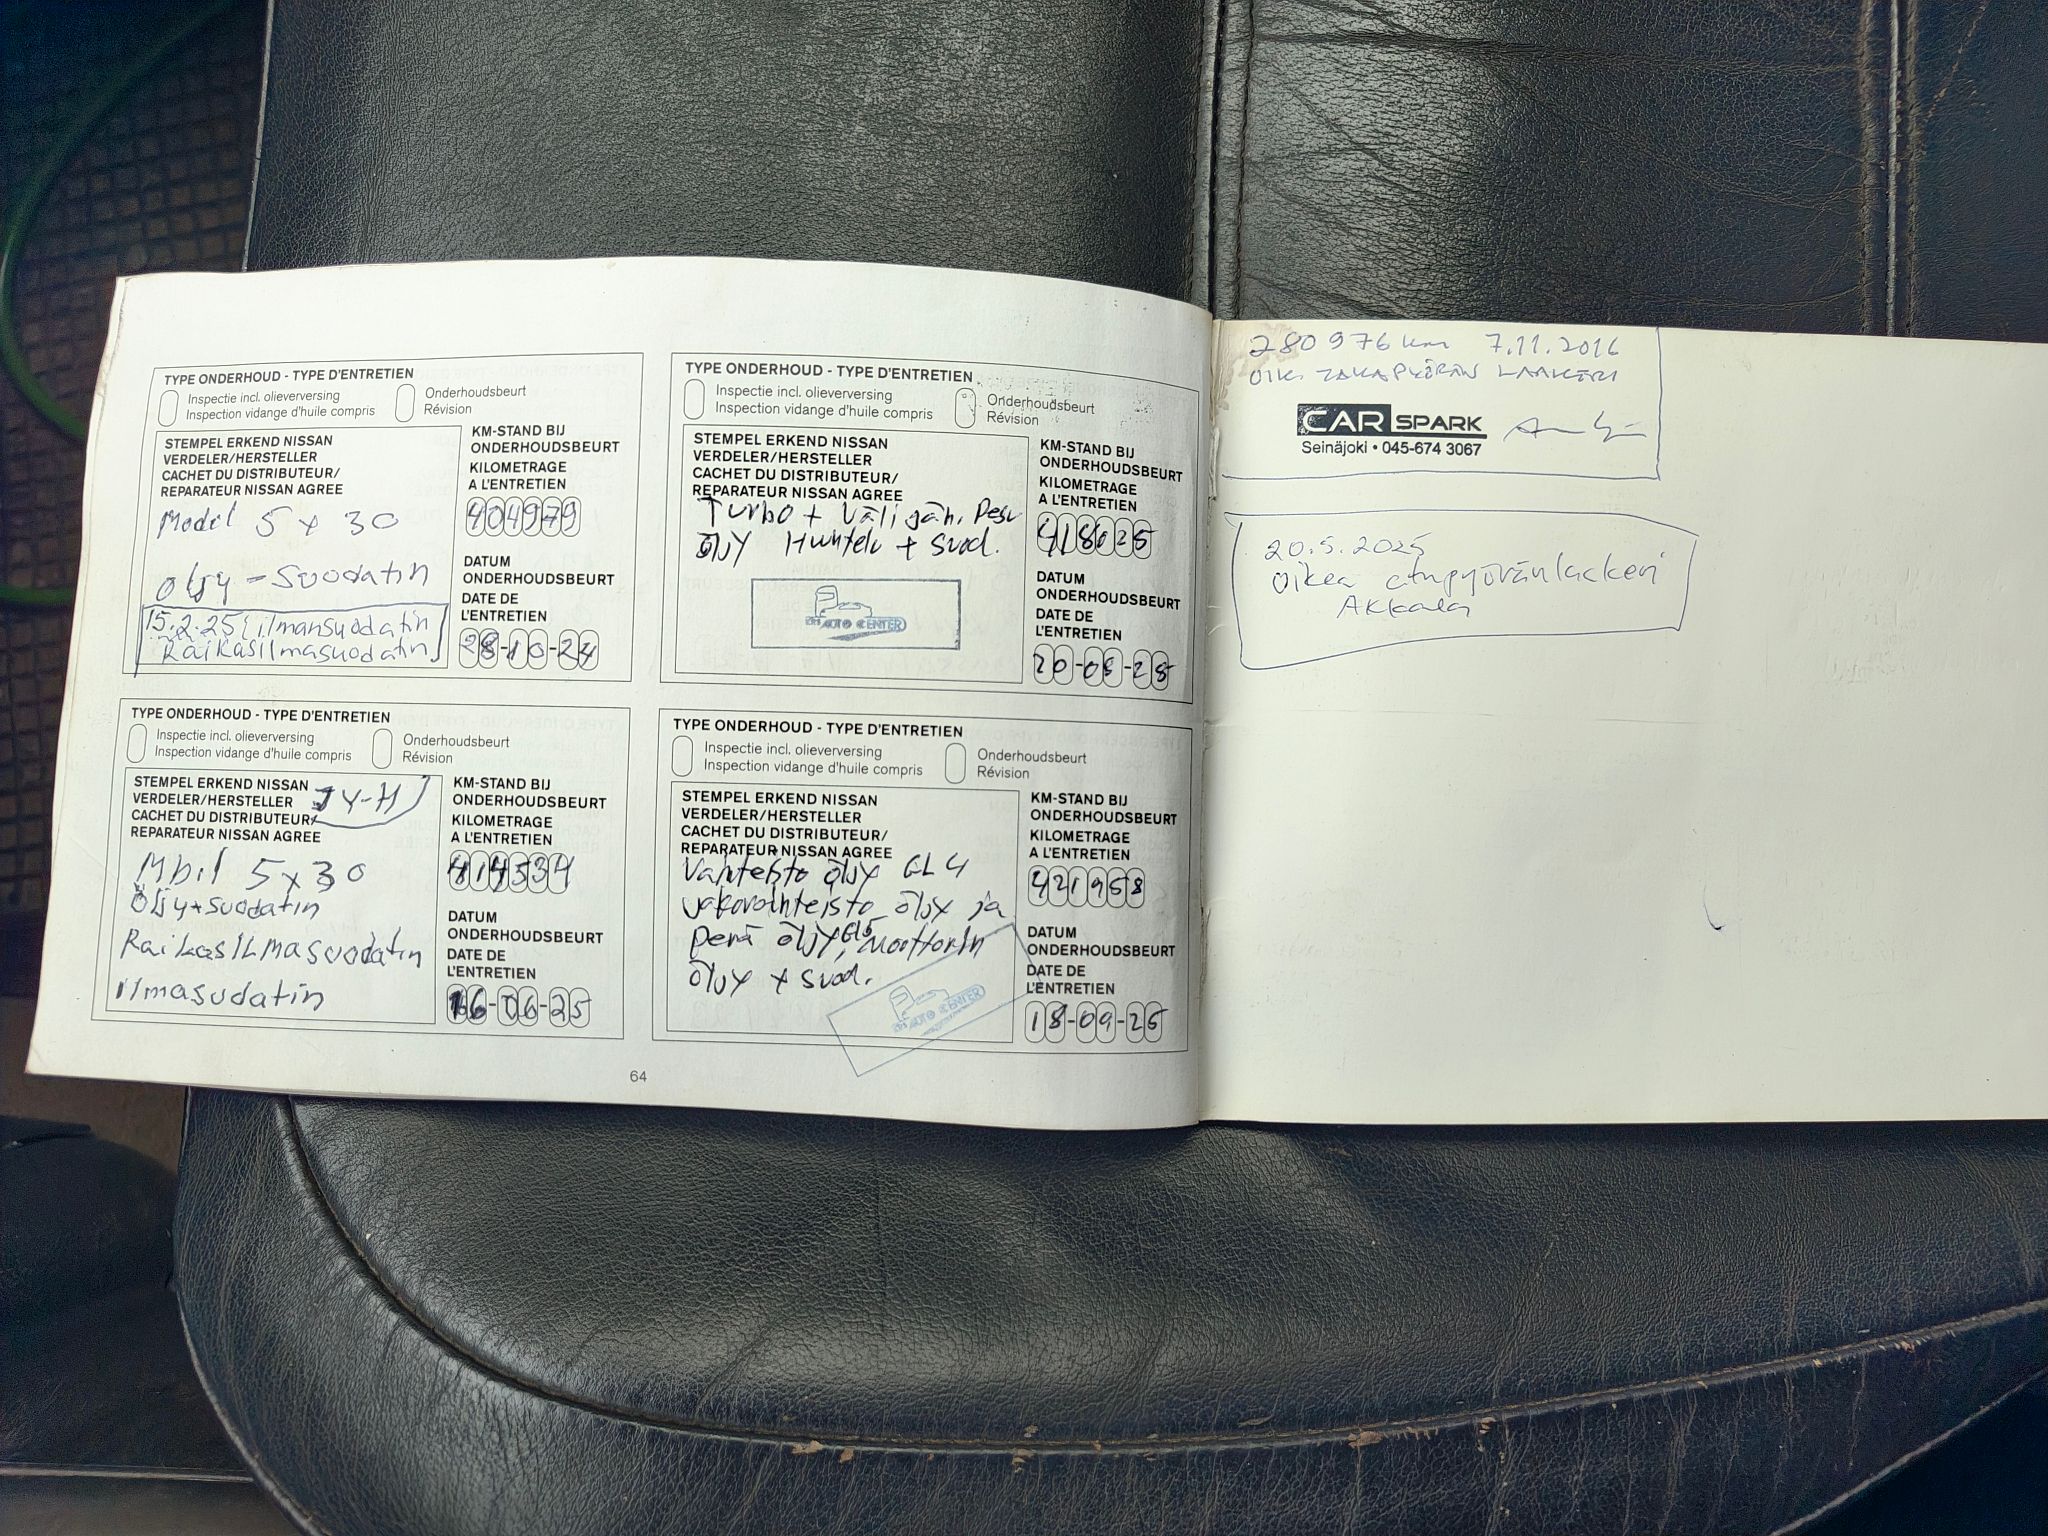 TYPE ONDERHOUD - TYPE D'ENTRETIEN
Inspectie incl. olieverversing
Inspection vidange d'huile compris
Onderhoudsbeurt
Révision
STEMPEL ERKEND NISSAN
VERDELER/HERSTELLER
CACHET DU DISTRIBUTEUR/
REPARATEUR NISSAN AGREE
5 x 30
Öljy - Suodatin
15.2.25 ilmansuodatin
Raikasilmasuodatin
KM-STAND BIJ
ONDERHOUDSBEURT
KILOMETRAGE
A L'ENTRETIEN
404979
DATUM
ONDERHOUDSBEURT
DATE DE
L'ENTRETIEN
28-10-24
TYPE ONDERHOUD - TYPE D'ENTRETIEN
Inspectie incl. olieverversing
Inspection vidange d'huile compris
Onderhoudsbeurt
Révision
STEMPEL ERKEND NISSAN
VERDELER/HERSTELLER
CACHET DU DISTRIBUTEUR/
REPARATEUR NISSAN AGREE
Turbo + Välijäh. Pesu
Öljy + Suod.
AUTO CENTER
KM-STAND BIJ
ONDERHOUDSBEURT
KILOMETRAGE
A L'ENTRETIEN
418025
DATUM
ONDERHOUDSBEURT
DATE DE
L'ENTRETIEN
TYPE ONDERHOUD - TYPE D'ENTRETIEN
Inspectie incl. olieverversing
Inspection vidange d'huile compris
Onderhoudsbeurt
Révision
STEMPEL ERKEND NISSAN
VERDELER/HERSTELLER
CACHET DU DISTRIBUTEUR/
REPARATEUR NISSAN AGREE
JY-H
Mbil 5x30
Öljy+suodatin
RaikasILmasuodatin
ilmasudatin
KM-STAND BIJ
ONDERHOUDSBEURT
KILOMETRAGE
A L'ENTRETIEN
414534
DATUM
ONDERHOUDSBEURT
DATE DE
L'ENTRETIEN
16-06-25
TYPE ONDERHOUD - TYPE D'ENTRETIEN
Inspectie incl. olieverversing
Inspection vidange d'huile compris
Onderhoudsbeurt
Révision
STEMPEL ERKEND NISSAN
VERDELER/HERSTELLER
CACHET DU DISTRIBUTEUR/
REPARATEUR NISSAN AGREE
Vaihteisto öljy GL4
jakovaihteisto öljy ja
perä öljy GL5, moottorin
öljy + suod.
AUTO CENTER
KM-STAND BIJ
ONDERHOUDSBEURT
KILOMETRAGE
A L'ENTRETIEN
421958
DATUM
ONDERHOUDSBEURT
DATE DE
L'ENTRETIEN
18-09-25
64
280976 km 7.11.2016
OIK. TAKAPYÖRÄN LAAKERI
CAR SPARK
Seinäjoki • 045-674 3067
20.5.2025
Oikea etupyöränlaakeri